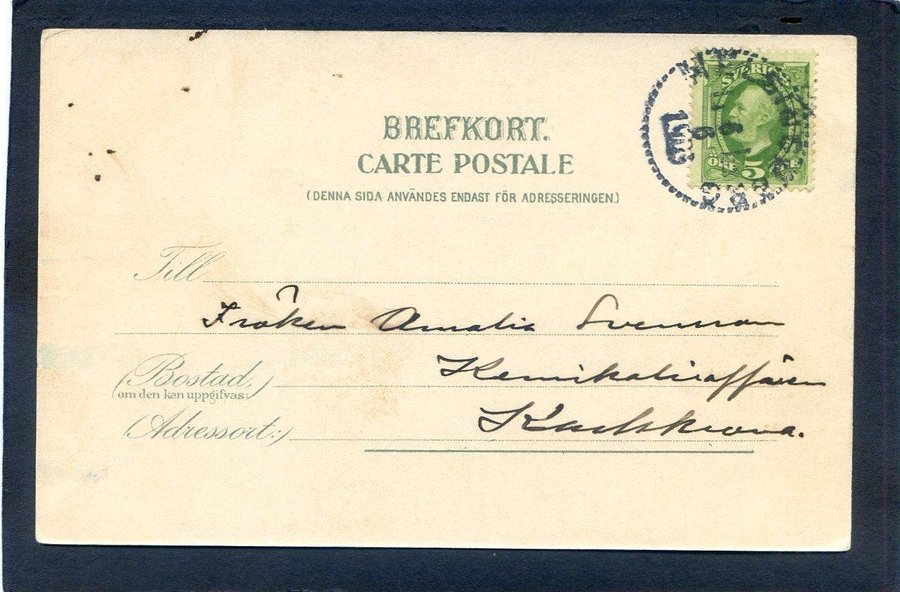 SVERIGE
5
6 11
1903
BREFKORT.
CARTE POSTALE
(DENNA SIDA ANVÄNDES ENDAST FÖR ADRESSERINGEN.)
Till
Fröken Amalia Svensson
(Bostad,) Kemikalieaffären
om den kan uppgifvas:
(Adressort:) Karlskrona.